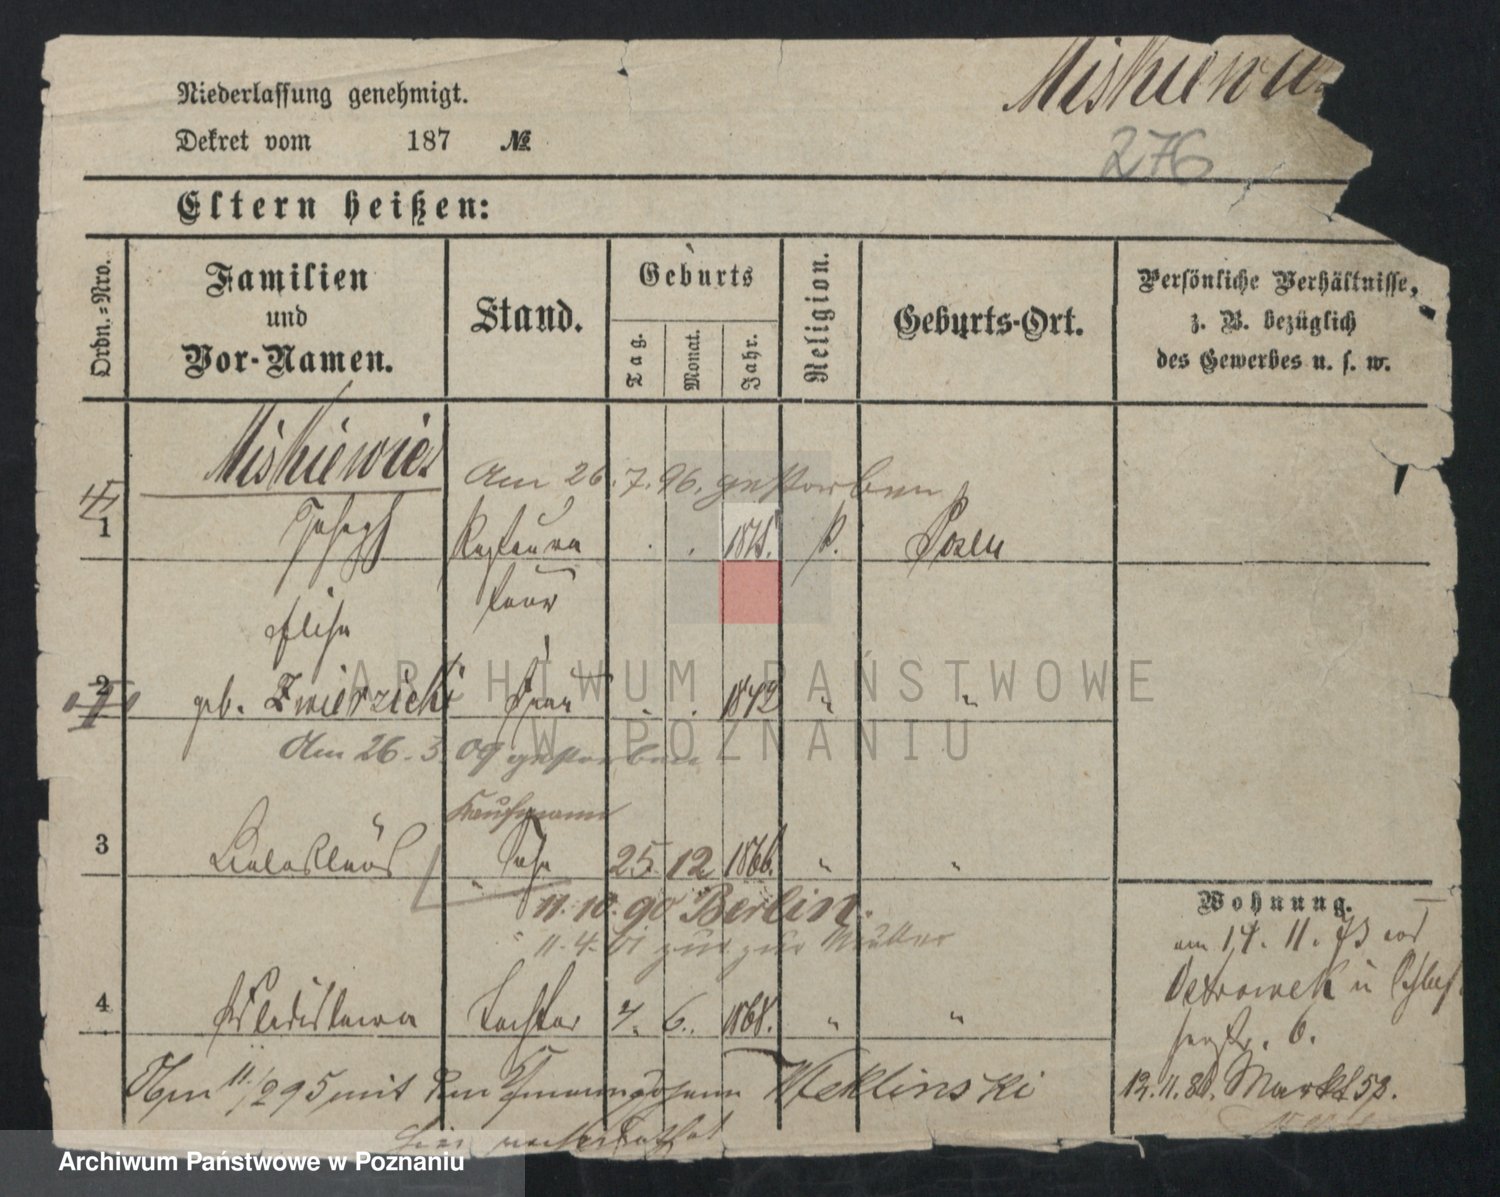 Niederlassung genehmigt.
Dekret vom 187 №
Miskiewi
276
Eltern heißen:
Ordn.-Nro.
Familien und Vor-Namen.
Stand.
Geburts
Tag.
Monat.
Jahr.
Religion.
Geburts-Ort.
Persönliche Verhältnisse,
z. B. bezüglich
des Gewerbes u. s. w.
Miskiewicz
Am 26.7.96. gestorben
1 Joseph Restaura Posen
teur
2 geb. Zwierzicki Frau 1842 " "
Am 26.3.09 gestorben
Kaufmann
3 Sohn 25. 12 1866. " "
11.10.90 Berlin.
11.4. zur Mutter
4 Wladislawa Tochter 4. 6. 1868. " "
Wohnung.
am 14. 11. 73 von
Ostrowek u
6.
12.11.80. Markt 52.
11./2 95 mit dem Weklinski
hier verheirathet
ARCHIWUM PAŃSTWOWE
W POZNANIU
Archiwum Państwowe w Poznaniu